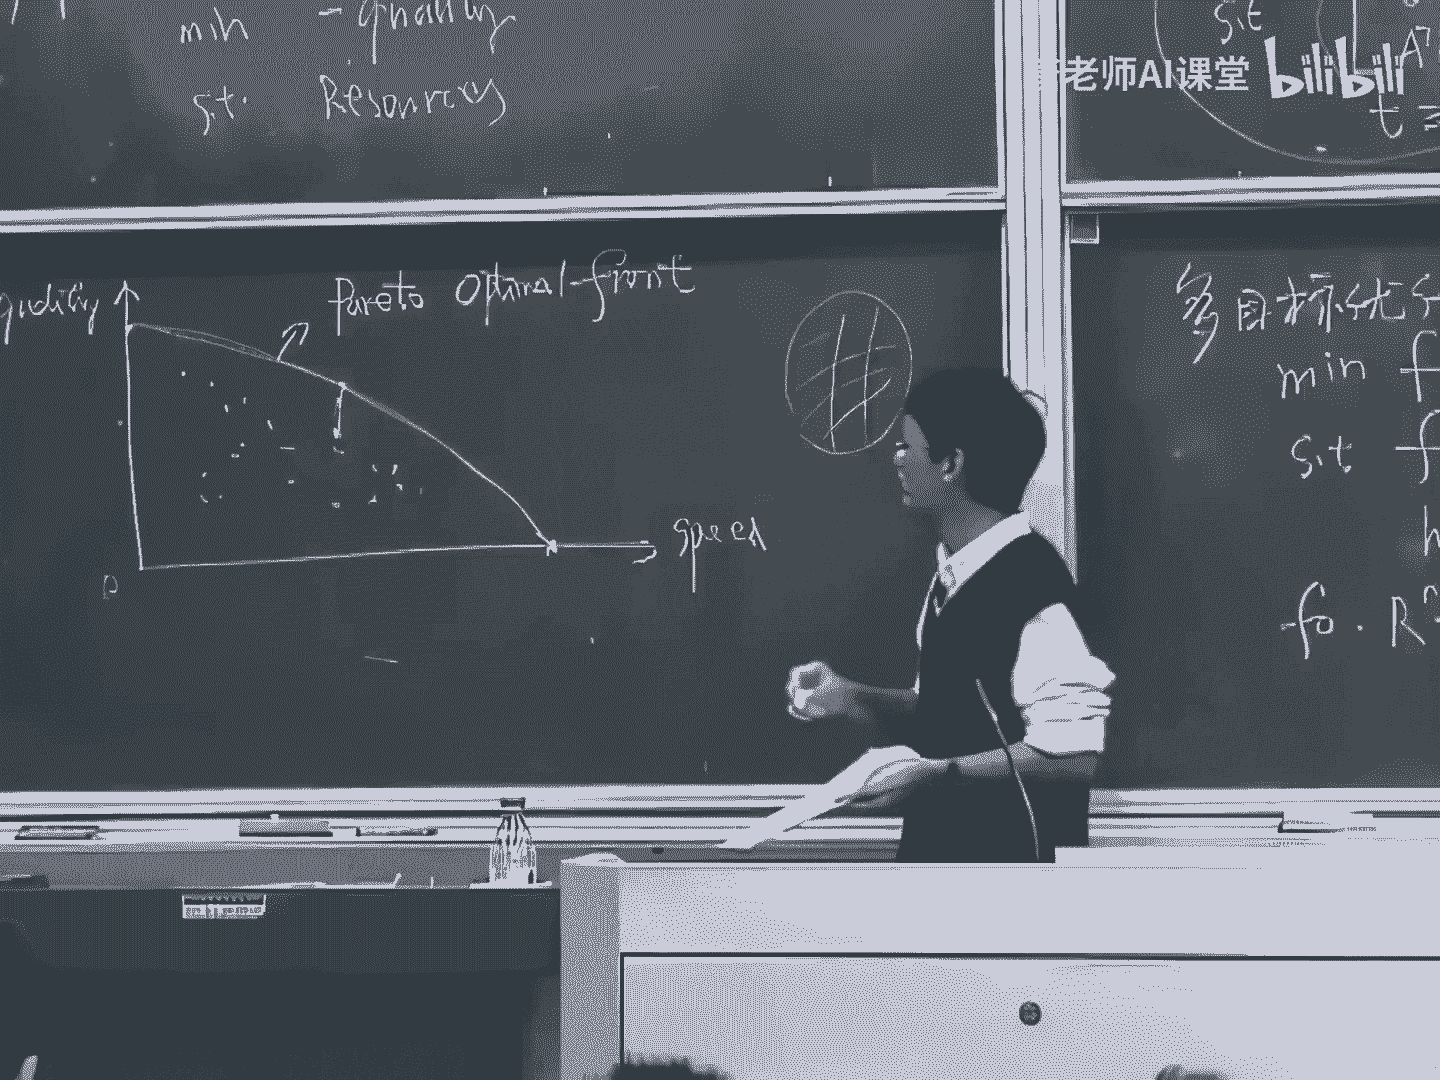 min - quality
s.t. Resources
s.t
老师AI课堂 bilibili
t =
quality
Pareto optimal front
speed
0
多目标优
min f
s.t f
h
f0 . R